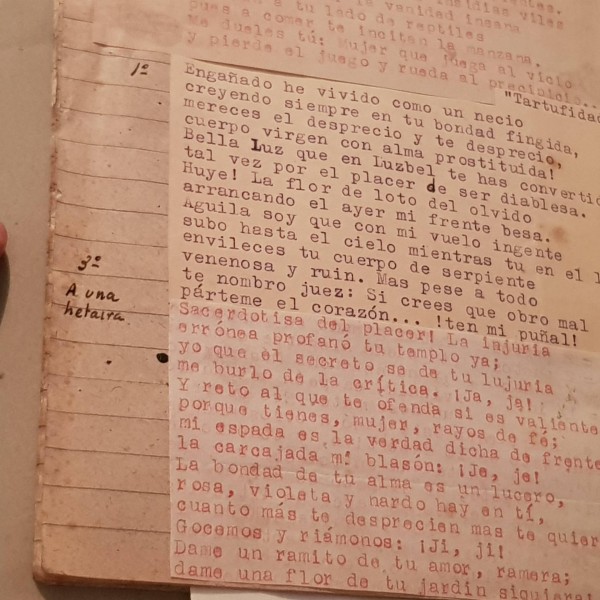 la vanidad insana
a tu lado de reptiles
pues a comer te incitan la manzana.
Me dueles tú: Mujer que juega al vicio
y pierde el juego y rueda al precipicio...
"Tartufidad
1º
Engañado he vivido como un necio
creyendo siempre en tu bondad fingida,
mereces el desprecio y te desprecio,
cuerpo virgen con alma prostituida!
Bella Luz que en Luzbel te has convertid
tal vez por el placer de ser diablesa.
Huye! La flor de loto del olvido
arrancando el ayer mi frente besa.
Aguila soy que con mi vuelo ingente
subo hasta el cielo mientras tu en el l
envileces tu cuerpo de serpiente
venenosa y ruin. Mas pese a todo
te nombro juez: Si crees que obro mal
párteme el corazón... !ten mi puñal!
3º
A una
hetaira
Sacerdotisa del placer! La injuria
errónea profanó tu templo ya;
yo que el secreto se de tu lujuria
me burlo de la crítica. ¡Ja, ja!
Y reto al que te ofenda si es valiente
porque tienes, mujer, rayos de fé;
mi espada es la verdad dicha de frente
la carcajada mi blasón: ¡Je, je!
La bondad de tu alma es un lucero,
rosa, violeta y nardo hay en tí,
cuanto más te desprecien mas te quier
Gocemos y riámonos: ¡Ji, ji!
Dame un ramito de tu amor, ramera;
dame una flor de tu jardin siquiera!